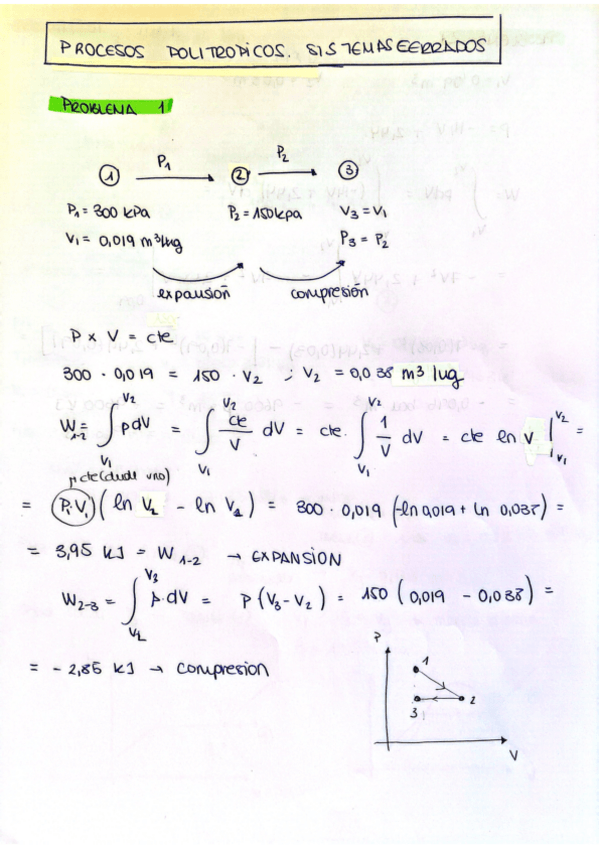 PROCESOS POLITROPICOS. SISTEMAS CERRADOS
PROBLEMA 1
1 P1 2 P2 3
P1 = 300 kPa P2 = 150 kpa V3 = V1
V1 = 0,019 m3/kg P3 = P2
expansión compresión
P x V = cte
300 · 0,019 = 150 · V2 ; V2 = 0,038 m3/kg
W1-2 = ∫V1V2 pdV = ∫V1V2 cte/V dV = cte · ∫V1V2 1/V dV = cte ln V |V1V2 =
= P1·V1 ( ln V2 - ln V1 ) = 300 · 0,019 (-ln 0,019 + ln 0,038) =
= 3,95 KJ = W1-2 → EXPANSION
W2-3 = ∫V2V3 p·dV = P (V3 - V2) = 150 ( 0,019 - 0,038 ) =
= - 2,85 KJ → compresion
P
1
3 2
V